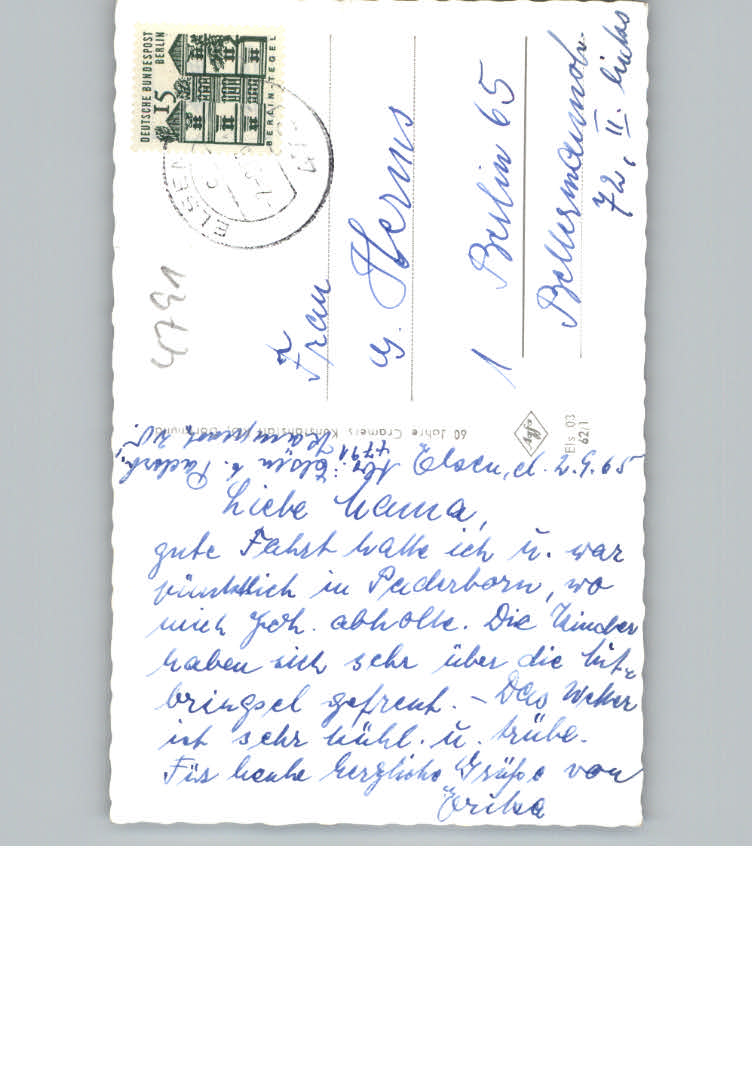 DEUTSCHE BUNDESPOST
BERLIN
15
BERLIN-TEGEL
ELSEN
4791
Frau
Herms
1 Berlin 65
Bellermannstr.
72, II. links
60 Jahre Cramers Kunstanstalt KG Dortmund
Els 03
62/1
4791 Elsen b. Paderb.
Elsen, d. 2.9.65
Liebe Mama,
gute Fahrt hatte ich u. war
pünktlich in Paderborn, wo
mich Joh. abholte. Die Kinder
haben sich sehr über die Mit-
bringsel gefreut. – Das Wetter
ist sehr kühl. u. trübe.
Für heute herzliche Grüße von
Erika